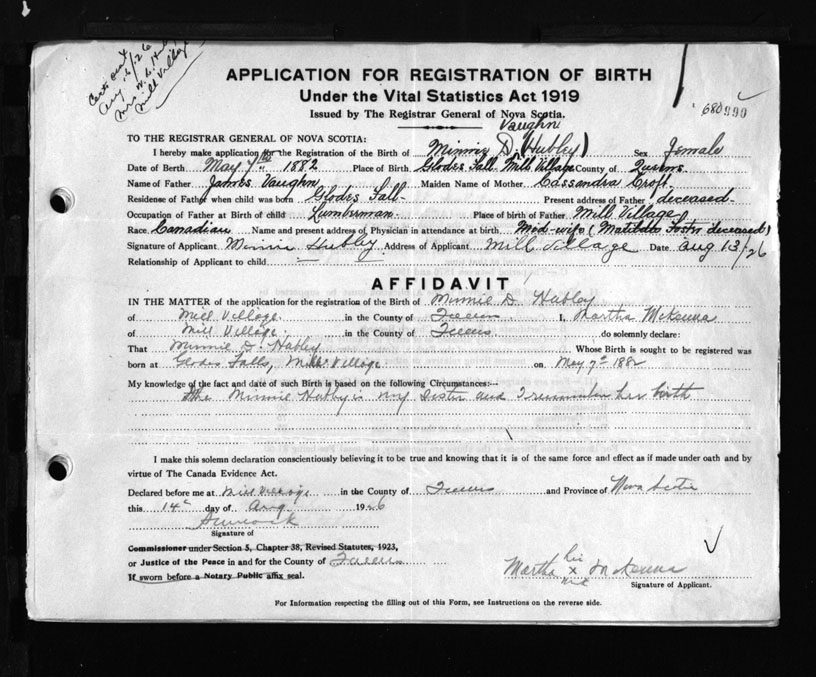 Cert. out
Aug 16/26
Mrs W. L. Hubley
Mill Village
APPLICATION FOR REGISTRATION OF BIRTH
Under the Vital Statistics Act 1919
Issued by The Registrar General of Nova Scotia.
680990
TO THE REGISTRAR GENERAL OF NOVA SCOTIA:
Vaughn
I hereby make application for the Registration of the Birth of Minnie D. (Hubley) Sex Female
Date of Birth May 7th 1882 Place of Birth Glodes Fall Mill Village County of Queens
Name of Father James Vaughn Maiden Name of Mother Cassandra Croft
Residense of Father when child was born Glodes Fall Present address of Father deceased
Occupation of Father at Birth of child Lumberman Place of birth of Father Mill Village
Race, Canadian Name and present address of Physician in attendance at birth, Mid-wife (Matilda Foster deceased)
Signature of Applicant Minnie Hubley Address of Applicant Mill Village Date Aug 13/26
Relationship of Applicant to child
AFFIDAVIT
IN THE MATTER of the application for the registration of the Birth of Minnie D. Hubley
of Mill Village in the County of Queens I, Martha McKenna
of Mill Village in the County of Queens do solemnly declare:
That Minnie D. Hubley Whose Birth is sought to be registered was
born at Glodes Falls, Mill Village on May 7th 1882
My knowledge of the fact and date of such Birth is based on the following Circumstances:—
the Minnie Hubley is my Sister and I remember her birth
I make this solemn declaration conscientiously believing it to be true and knowing that it is of the same force and effect as if made under oath and by
virtue of The Canada Evidence Act.
Declared before me at Mill Village in the County of Queens and Province of Nova Scotia
this 14th day of Aug 1926
Signature of
Commissioner under Section 5, Chapter 38, Revised Statutes, 1923,
or Justice of the Peace in and for the County of Queens
If sworn before a Notary Public affix seal.
her
Martha x McKenna
Signature of Applicant.
For Information respecting the filling out of this Form, see Instructions on the reverse side.